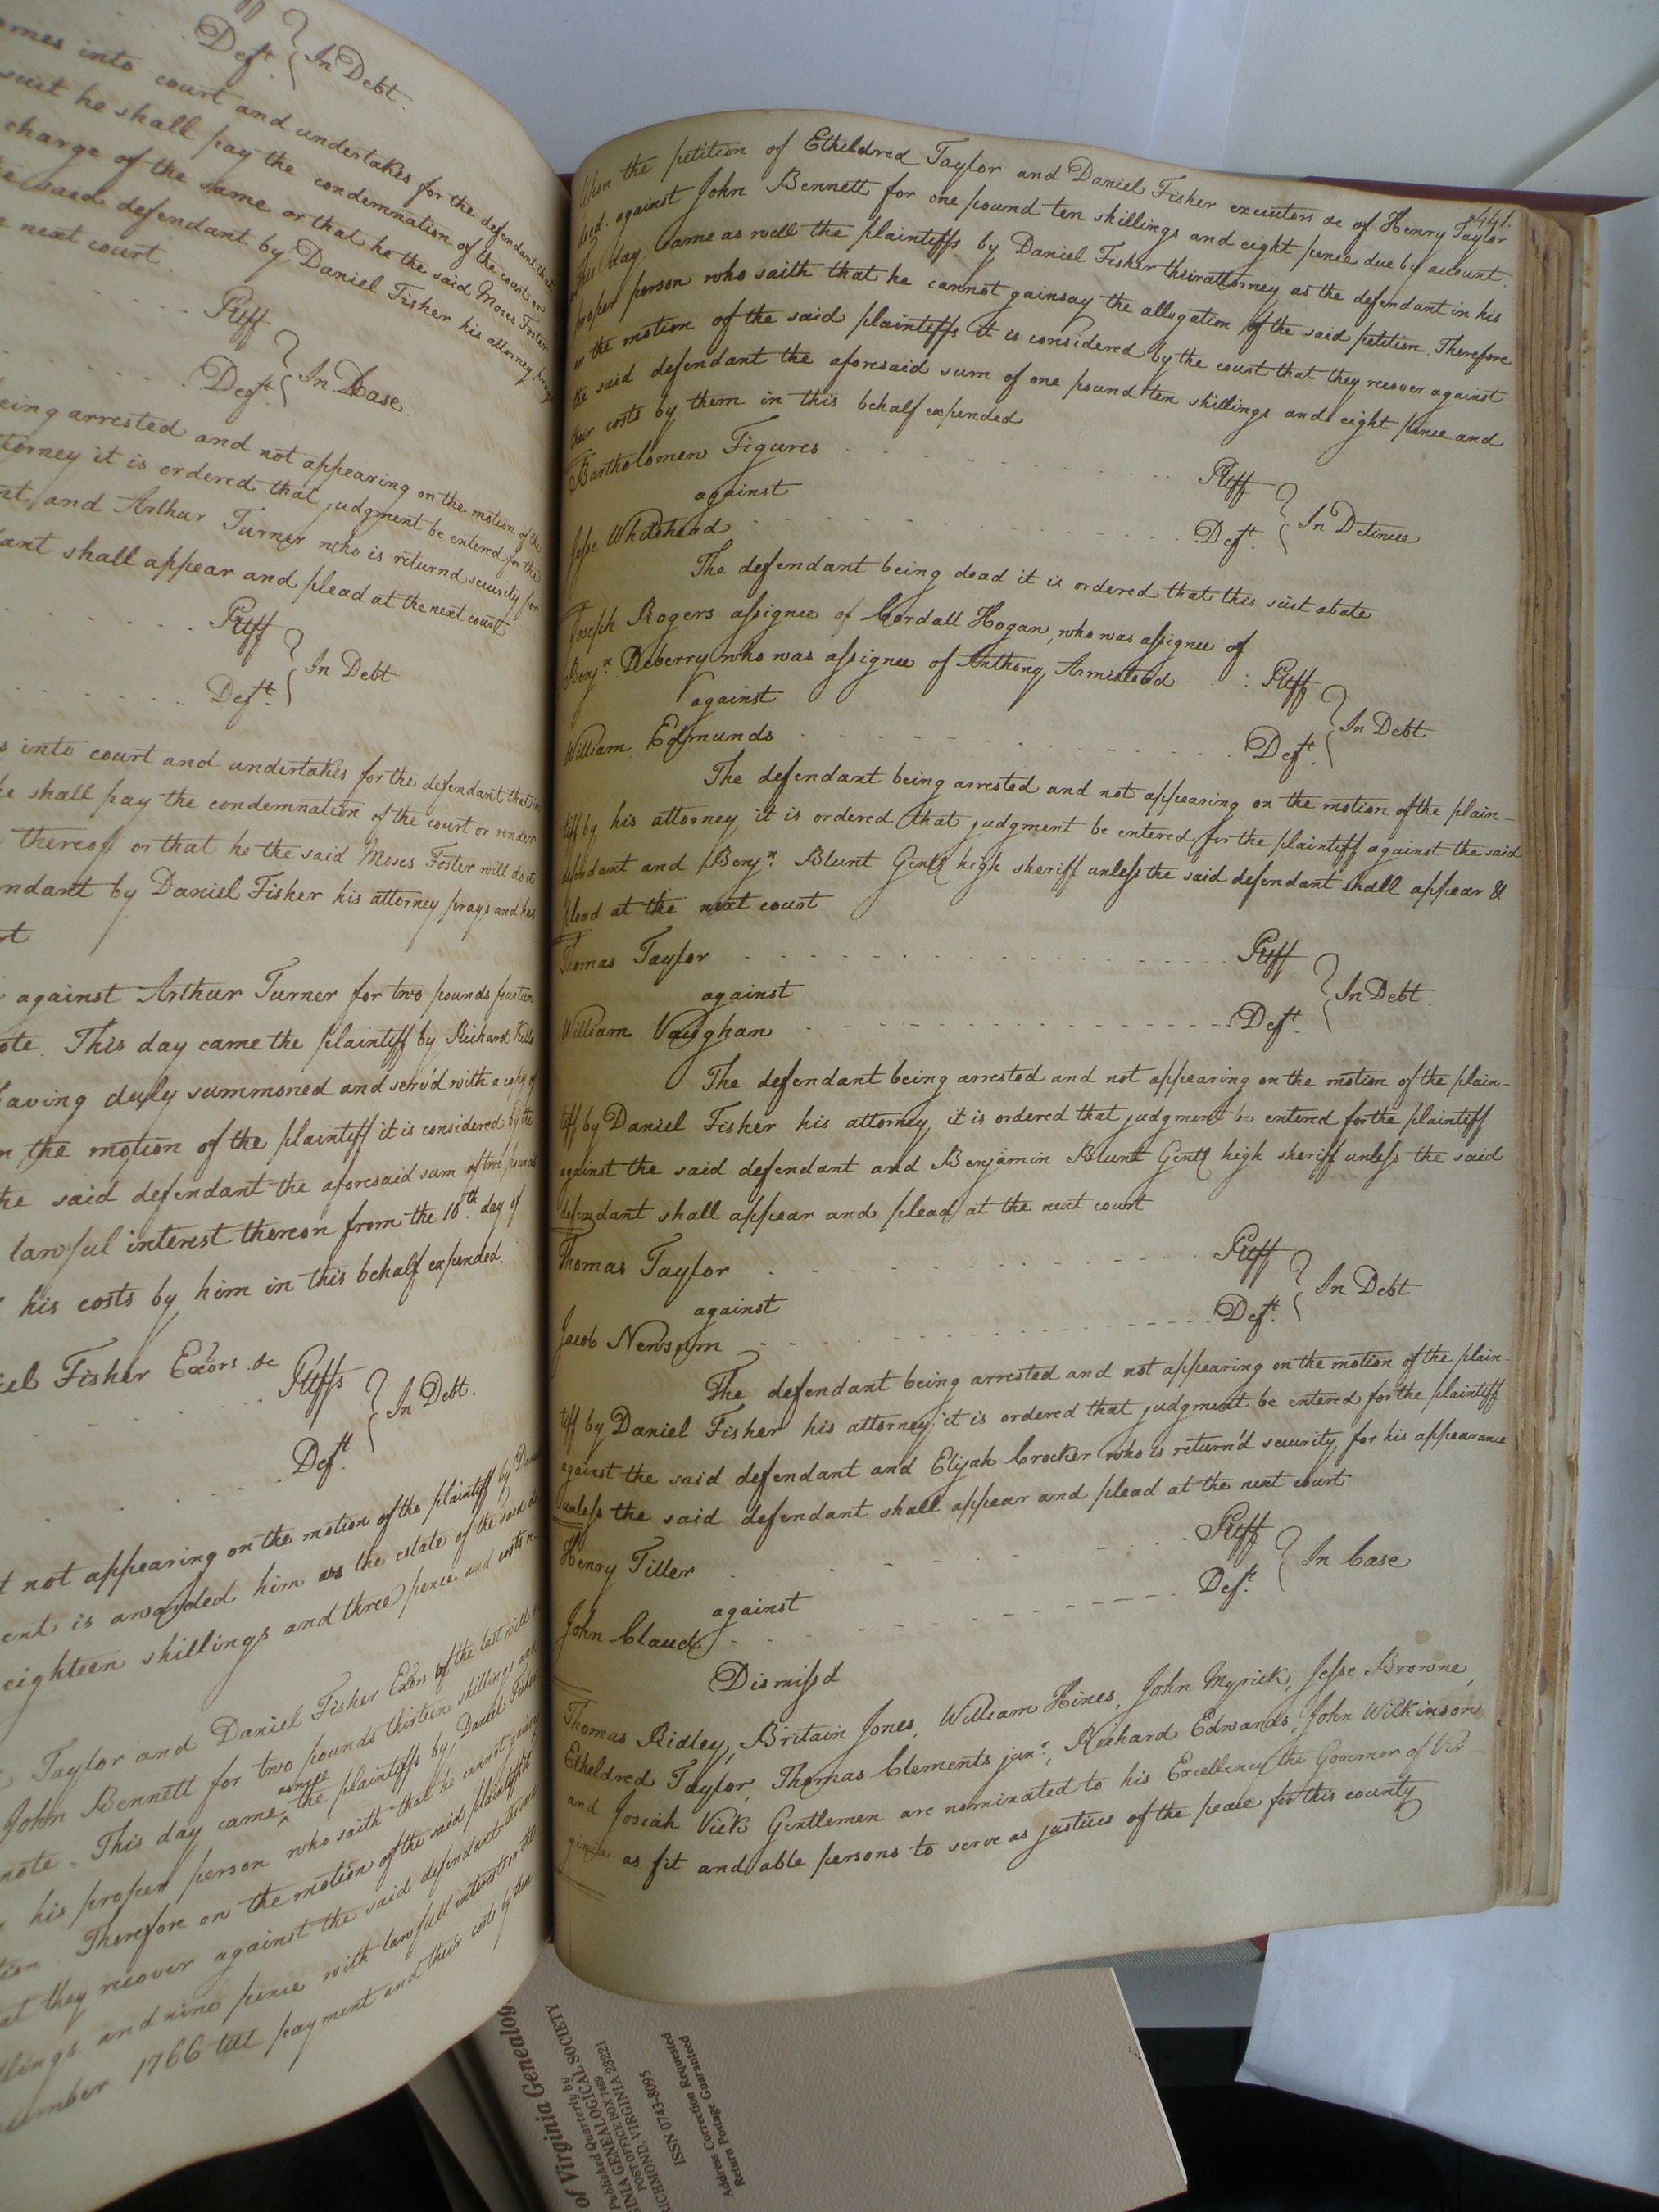 Deft. } In Debt.
into court and undertakes for the defendant that
suit he shall pay the condemnation of the court or
charge of the same or that he the said Moses Foster
said defendant by Daniel Fisher his attorney prays
next court.
Pltff
Deft. } In Case.
being arrested and not appearing on the motion of the
attorney it is ordered that judgment be entered for the
and Arthur Turner who is returnd security for
shall appear and plead at the next court
Pltff
Deft. } In Debt
into court and undertakes for the defendant that
shall pay the condemnation of the court or render
thereof or that he the said Moses Foster will do it
by Daniel Fisher his attorney prays and has
against Arthur Turner for two pounds fourteen
This day came the plaintiff by Richard
having duly summoned and serv'd with a copy of
the motion of the plaintiff it is considered by the
the said defendant the aforesaid sum of two pounds
lawful interest thereon from the 10th. day of
his costs by him in this behalf expended.
Fisher Exõrs &c Pltffs
Deft. } In Debt.
not appearing on the motion of the plaintiff by
is awarded him as the estate of the said
eighteen shillings and three pence and costs
Taylor and Daniel Fisher Exõrs of the last will
John Bennett for two pounds thirteen shillings and
note. This day came aswell the plaintiffs by Daniel Fisher
his proper person who saith that he cannot gainsay
Therefore on the motion of the said plaintiffs it
they recover against the said defendant the
and nine pence with lawfull interest
1766 till payment and their costs by them
441.
Upon the petition of Etheldred Taylor and Daniel Fisher executors &c of Henry Taylor
decd. against John Bennett for one pound ten shillings and eight pence due by account.
This day came as well the plaintiffs by Daniel Fisher their attorney as the defendant in his
proper person who saith that he cannot gainsay the allegation of the said petition. Therefore
on the motion of the said plaintiffs it is considered by the court that they recover against
the said defendant the aforesaid sum of one pound ten shillings and eight pence and
their costs by them in this behalf expended
Bartholomew Figures Pltff
against
Jesse Whitehead Deft. } In Detinue
The defendant being dead it is ordered that this suit abate
Joseph Rogers assignee of Cordall Hogan, who was assignee of
Benjn. Deberry who was assignee of Anthony Armistead Pltff
against
William Edmunds Deft. } In Debt
The defendant being arrested and not appearing on the motion of the plain-
tiff by his attorney it is ordered that judgment be entered for the plaintiff against the said
defendant and Benjn. Blunt Gentl high sheriff unless the said defendant shall appear &
plead at the next court
Thomas Taylor Pltff
against
William Vaughan Deft. } In Debt.
The defendant being arrested and not appearing on the motion of the plain-
tiff by Daniel Fisher his attorney it is ordered that judgment be entered for the plaintiff
against the said defendant and Benjamin Blunt Gentl high sheriff unless the said
defendant shall appear and plead at the next court
Thomas Taylor Pltff
against
Jacob Newsum Deft. } In Debt
The defendant being arrested and not appearing on the motion of the plain-
tiff by Daniel Fisher his attorney it is ordered that judgment be entered for the plaintiff
against the said defendant and Elijah Crocker who is return'd security for his appearance
unless the said defendant shall appear and plead at the next court
Henry Tiller Pltff
against
John Claud Deft. } In Case
Dismissd
Thomas Ridley, Britain Jones, William Hines, John Myrick, Jesse Browne,
Etheldred Taylor, Thomas Clements junr., Richard Edwards, John Wilkinson
and Josiah Vick Gentlemen are nominated to his Excellency the Governor of Vir
ginia as fit and able persons to serve as justices of the peace for this county
of Virginia Genealog
Published Quarterly by
INIA GENEALOGICAL SOCIETY
POST OFFICE BOX 7469
RICHMOND, VIRGINIA 23221
ISSN 0743-8095
Address Correction Requested
Return Postage Guaranteed